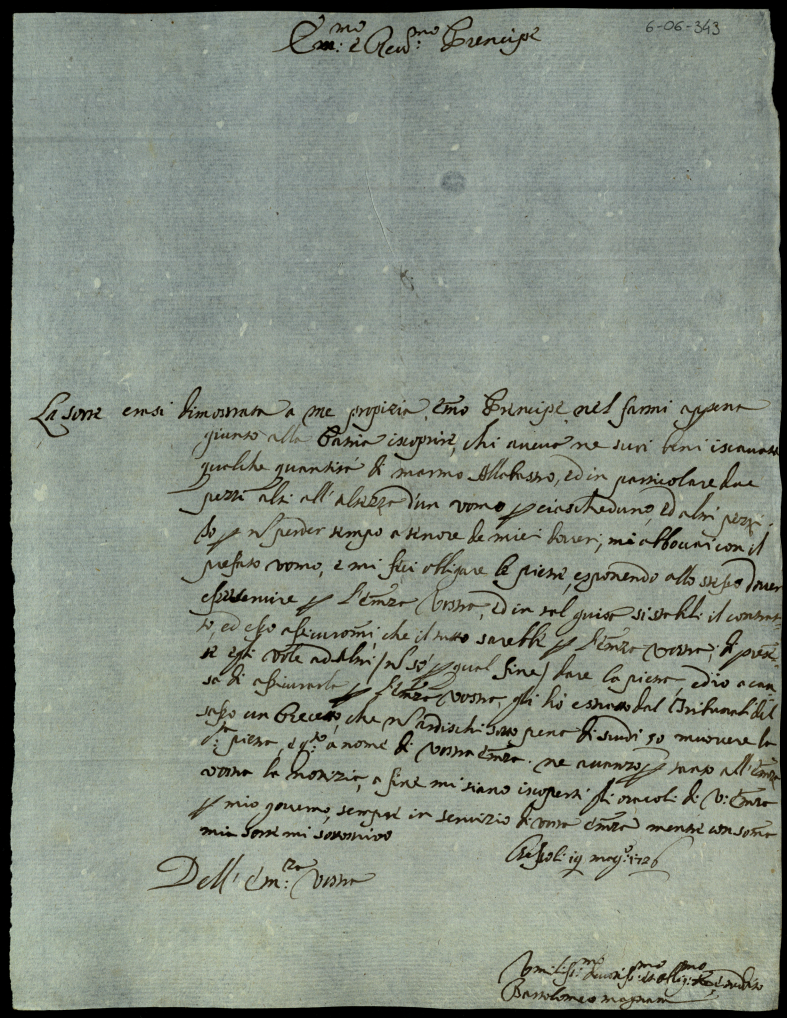 6-06-343
Em:mo e Reu:mo Prencipe
La sorte erasi dimostrata a me propizia Emo Prencipe nel farmi appena
giunto alla Patria iscoprire, chi aueua ne suoi beni iscauato
qualche quantità di marmo Allabastro, ed in particolare due
pezzi alti all'altezza d'un vomo p ciascheduno, ed altri pezzi.
Io p nõ perder tempo a tenore de miei doueri, mi abboccai con il
prefato vomo, e mi feci obligare le pietre, esponendo allo stesso douer
esse seruire p l'Emza Vostra, ed in tal guisa si stabilì il contrat-
to, ed esso assicuromi, che il tutto sarebbe p l'Emza Vostra; di presen-
te egli vole ad altri (nõ sò p qual fine) dare la pietra, ed io a cau-
sa di assicurarla p l'Emza Vostra, gli hò estratto dal Tribunale del
un Precetto, che nõ ardischi sotto pena di scudi 50 muouere la
pietra, e a nome di Vostra Emza. ne auanzo p tanto all'Emza
Vostra la notizia, a fine mi siano iscoperti gli oracoli di V: Emza
p mio gouerno, sempre in seruizio di Vostra Emza mentre con soma
mia sorte mi sottoscriuo
19 mag:o 1726
Dell'Em:za Vostra
Vmilis:mo Deuotis:mo ed Oblig:mo
Bartolomeo Magnani